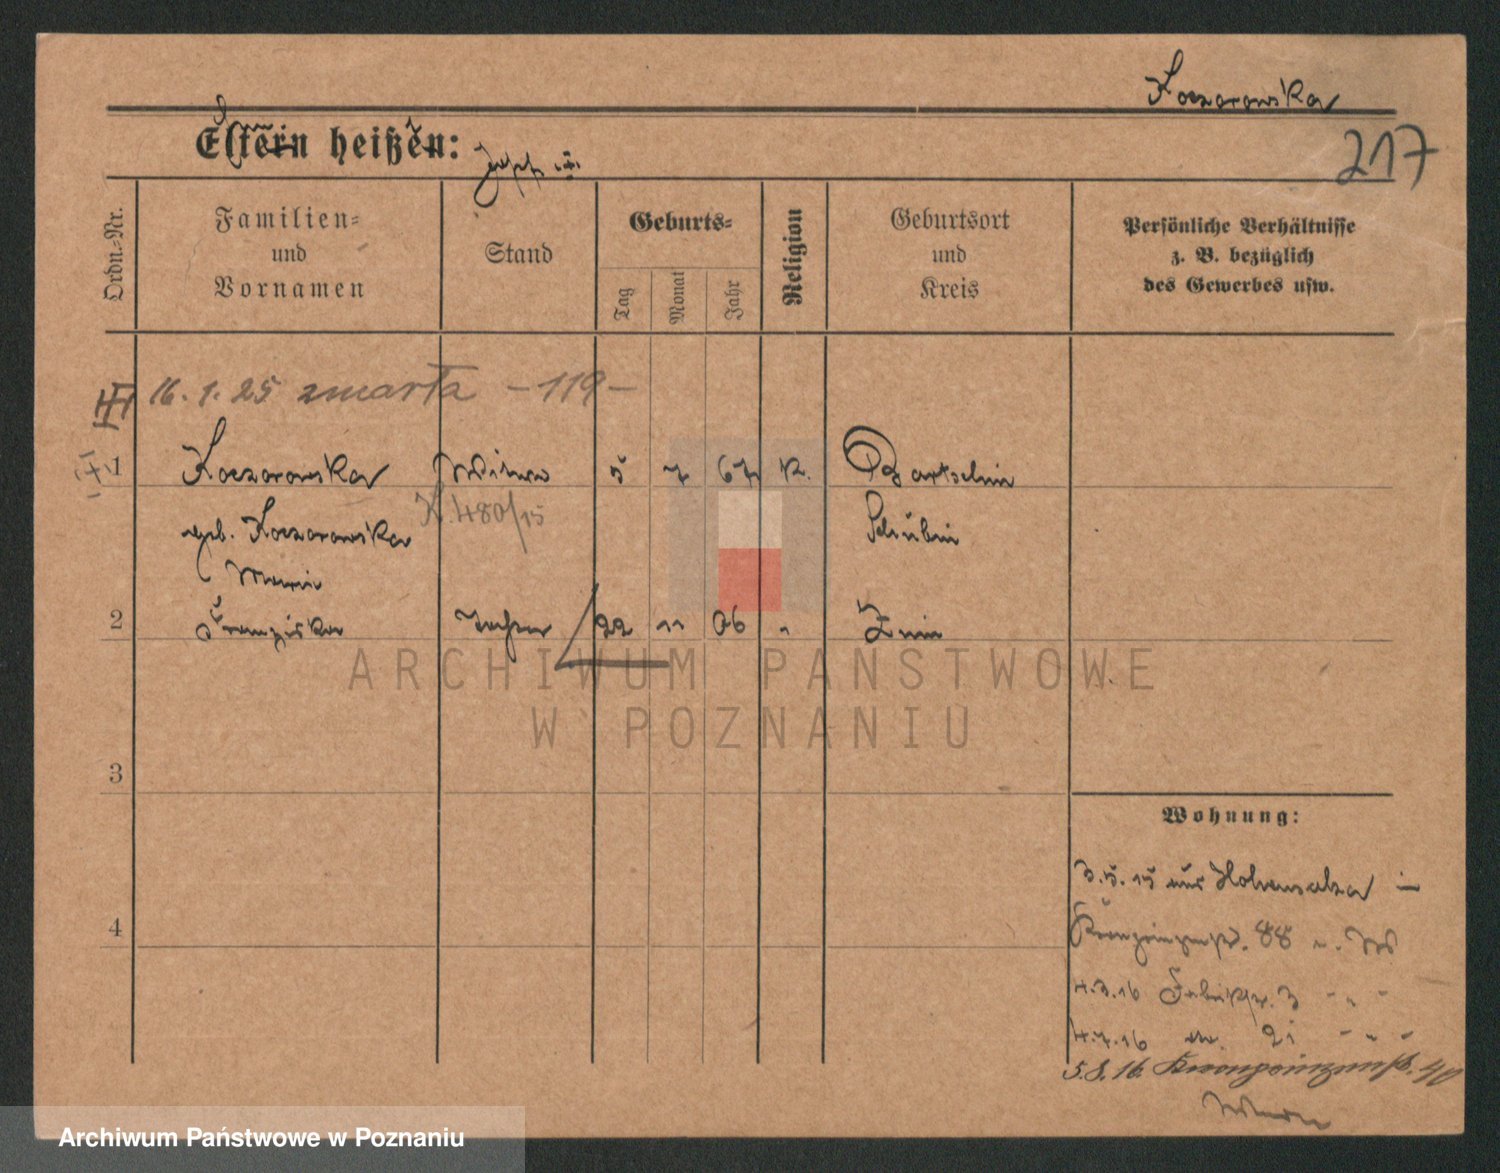 Koczorowska
Eltern heißen:
217
Ordn.-Nr.
Familien-
und
Vornamen
Stand
Geburts-
Tag
Monat
Jahr
Religion
Geburtsort
und
Kreis
Persönliche Verhältnisse
z. B. bezüglich
des Gewerbes usw.
16.1.25 zmarła -119-
1 Koczorowska Witwe 5 7 67 k. Bartschin
geb. Koczorowska K.480/15 Schubin
Maria
2 Franziska Tochter 22 11 06 " Znin
3
4
Wohnung:
3.5.15 aus Hohensalza in
Kronprinzenstr. 88
4.3.16 Fabrikstr. 3 " " "
4.7.16 21 " " "
5.8.16. Kronprinzenstr. 40
ARCHIWUM PAŃSTWOWE
W POZNANIU
Archiwum Państwowe w Poznaniu